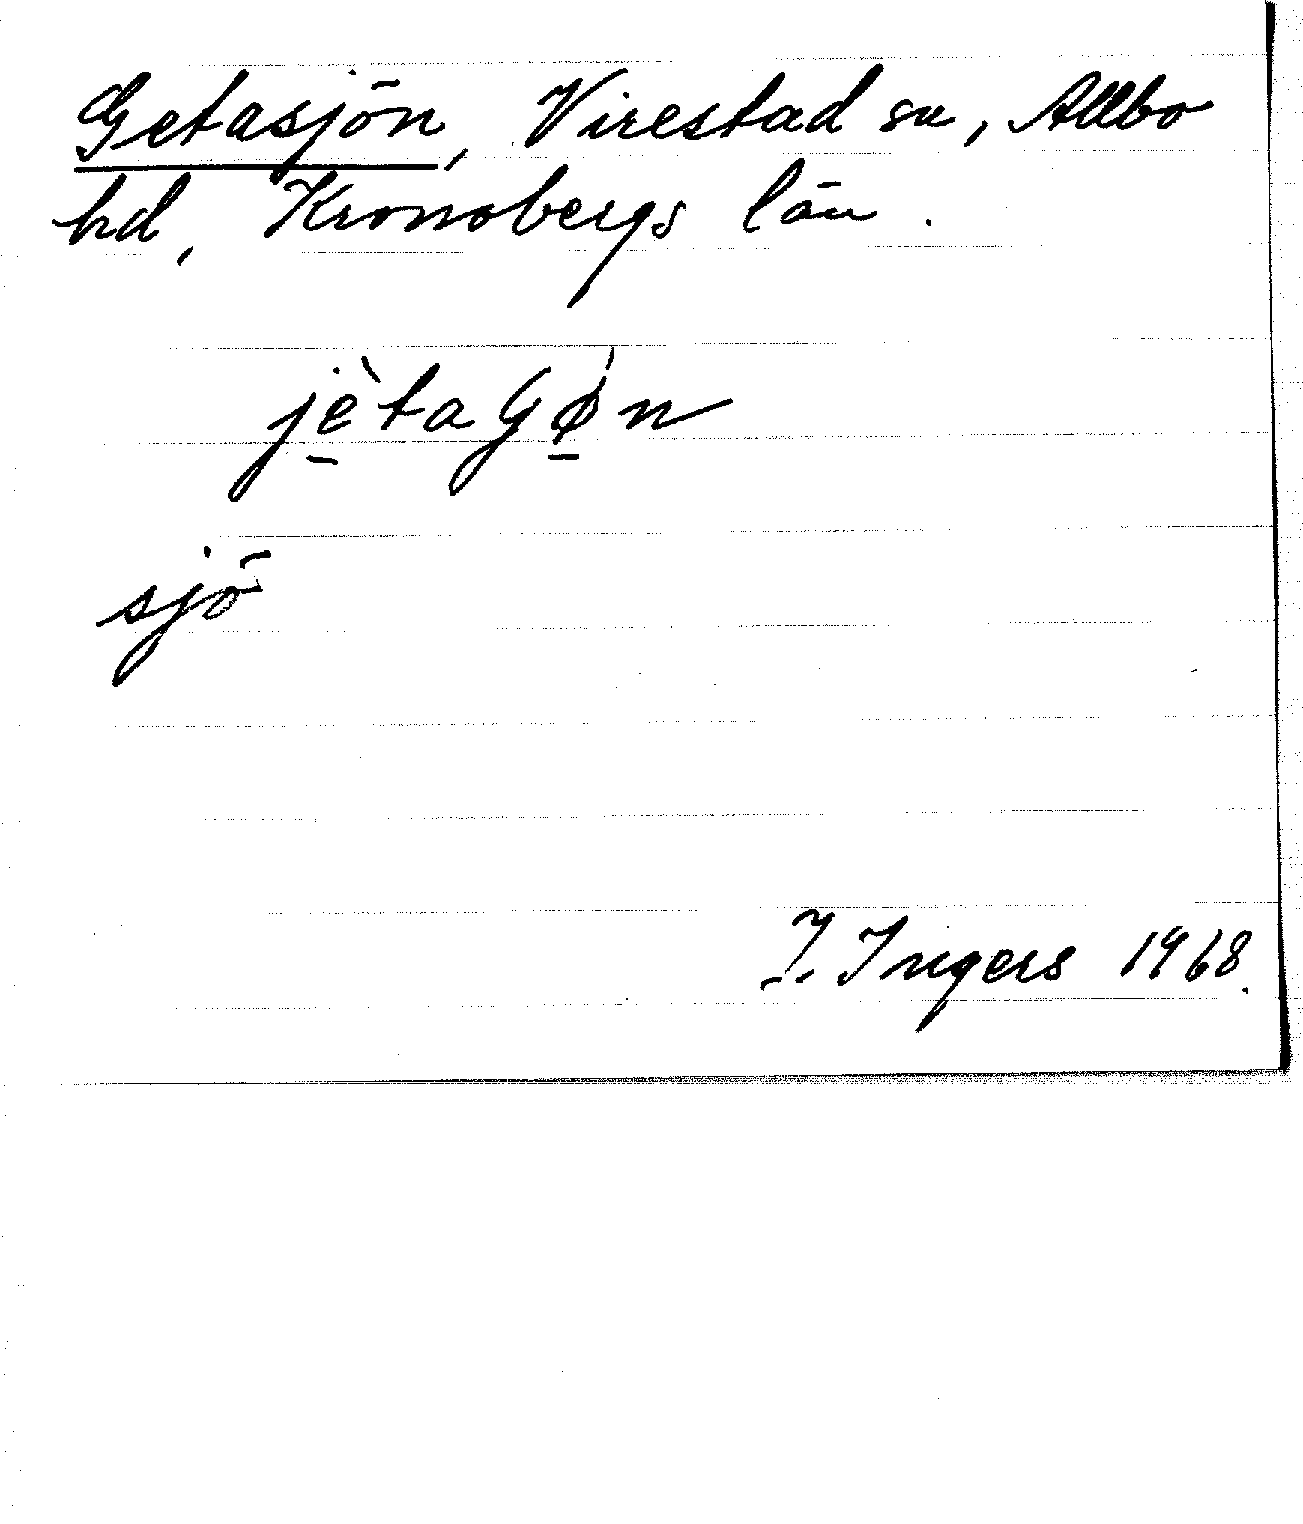 Getasjön, Virestad sn, Allbo
hd, Kronobergs län.
jè̱taɢǿ̱n
sjö
I. Ingers 1968.